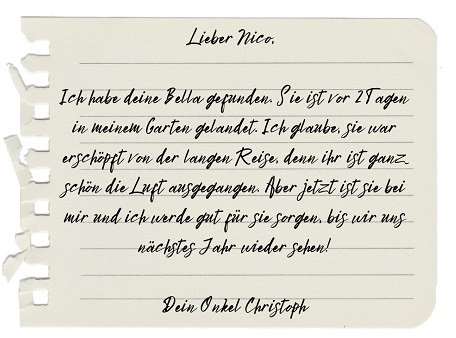 Lieber Nico,
Ich habe deine Bella gefunden. Sie ist vor 2 Tagen
in meinem Garten gelandet. Ich glaube, sie war
erschöpft von der langen Reise, denn ihr ist ganz
schön die Luft ausgegangen. Aber jetzt ist sie bei
mir und ich werde gut für sie sorgen, bis wir uns
nächstes Jahr wieder sehen!
Dein Onkel Christoph